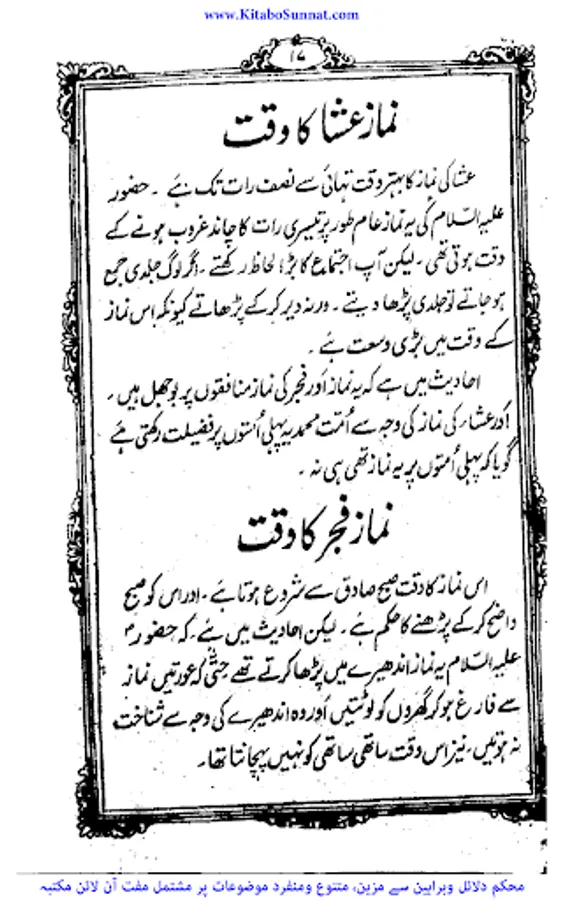 www.KitaboSunnat.com
۱۷
نمازِ عشا کا وقت
عشا کی نماز کا بہتر وقت تہائی سے نصف رات تک ہے ۔ حضور
علیہ السّلام کی یہ نماز عام طور پر تیسری رات کا چاند غروب ہونے کے
وقت ہوتی تھی ۔ لیکن آپ اجتماع کا بڑا لحاظ رکھتے ۔ اگر لوگ جلدی جمع
ہو جاتے تو جلدی پڑھا دیتے ۔ ورنہ دیر کر کے پڑھاتے کیونکہ اس نماز
کے وقت میں بڑی وسعت ہے ۔
احادیث میں ہے کہ یہ نماز اور فجر کی نماز منافقوں پر بوجھل ہیں ۔
اور عشاء کی نماز کی وجہ سے اُمت محمدیہ پہلی اُمتوں پر فضیلت رکھتی ہے
گویا کہ پہلی اُمتوں پر یہ نماز تھی ہی نہ ۔
نمازِ فجر کا وقت
اس نماز کا وقت صبح صادق سے شروع ہوتا ہے ۔ اور اس کو صبح
واضح کر کے پڑھنے کا حکم ہے ۔ لیکن احادیث میں ہے ۔ کہ حضور
علیہ السّلام یہ نماز اندھیرے میں پڑھا کرتے تھے حتیٰ کہ عورتیں نماز
سے فارغ ہو کر گھروں کو لوٹتیں اور وہ اندھیرے کی وجہ سے شناخت
نہ ہوتیں ۔ نیز اس وقت ساتھی ساتھی کو نہیں پہچانتا تھا ۔
محکم دلائل وبراہین سے مزین، متنوع ومنفرد موضوعات پر مشتمل مفت آن لائن مکتبہ